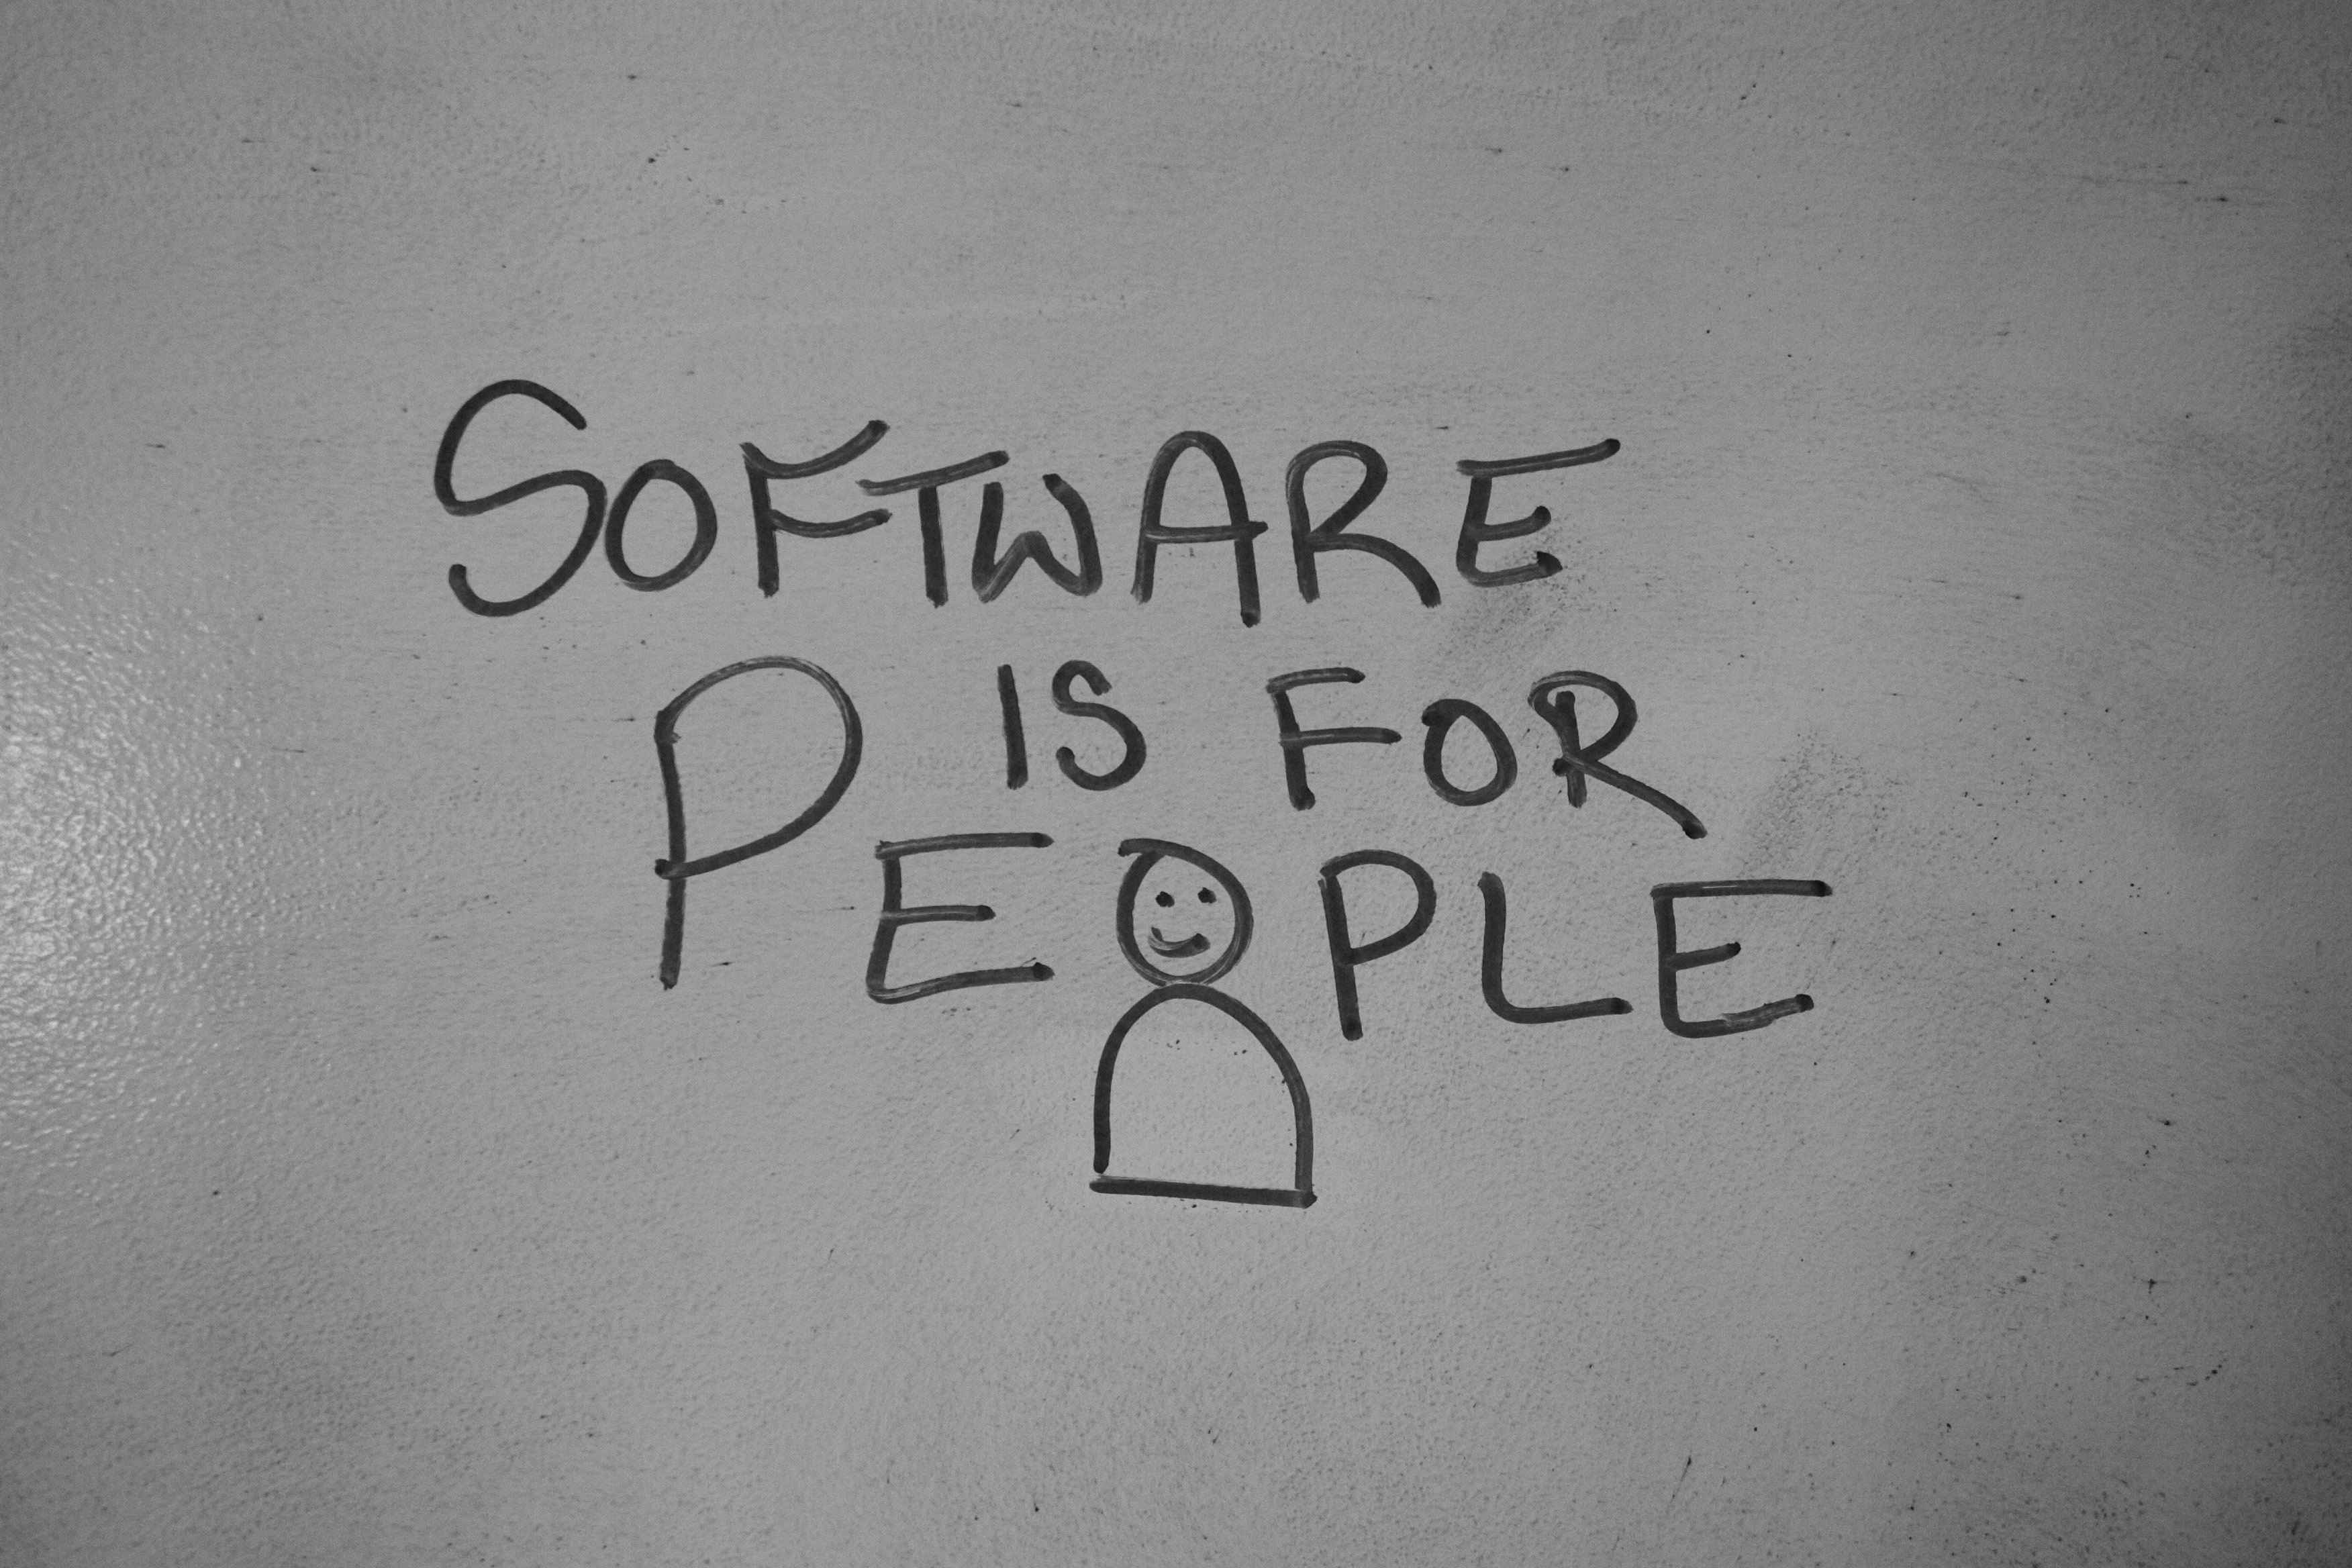 SOFTWARE
IS FOR
PEOPLE